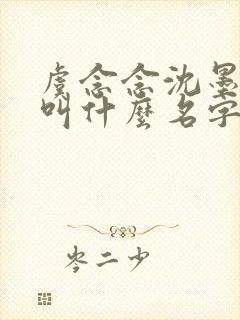 虞念念沈墨
叫什麼名字
岑二少